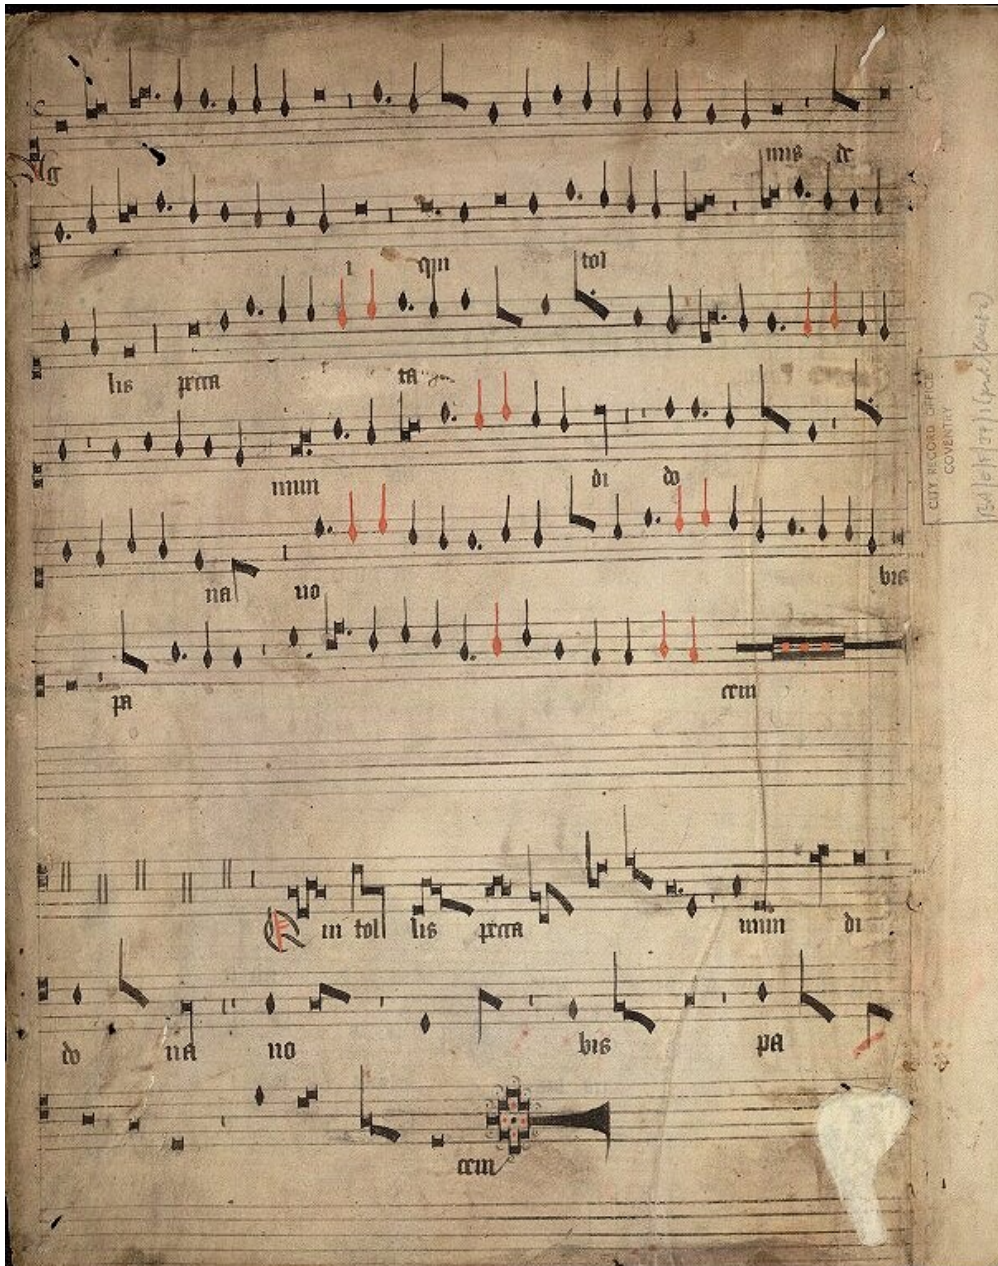 Ag nus de
i qui tol
lis pecca ta
mun di do
na no bis
pa cem
Qui tol lis pecca mun di
do na no bis pa
cem
CITY RECORD OFFICE
COVENTRY